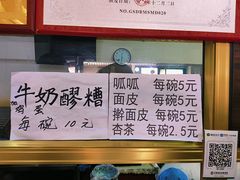 十二月二日
NO:GSDBMSMD020
牛奶醪糟
鸡蛋
每碗10元
呱呱 每碗5元
面皮 每碗5元
擀面皮 每碗5元
杏茶 每碗2.5元